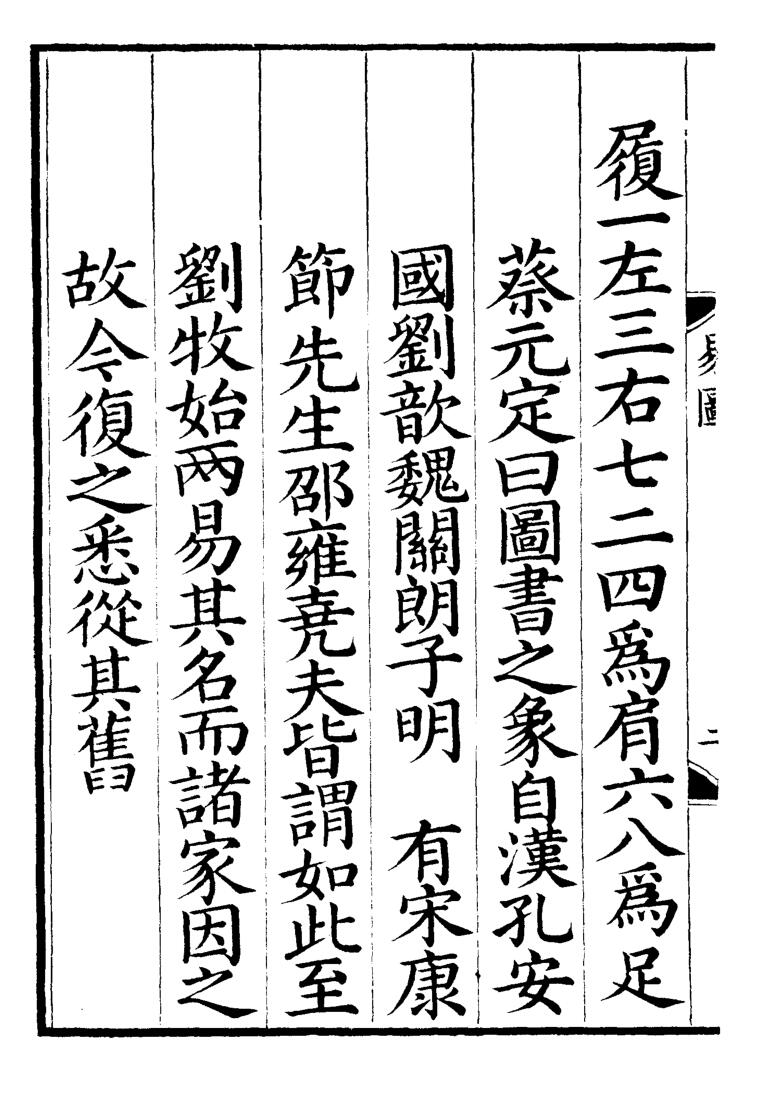 易圖
二
履一左三右七二四爲肩六八爲足
蔡元定曰圖書之象自漢孔安
國劉歆魏關朗子明　有宋康
節先生邵雍堯夫皆謂如此至
劉牧始兩易其名而諸家因之
故今復之悉從其舊